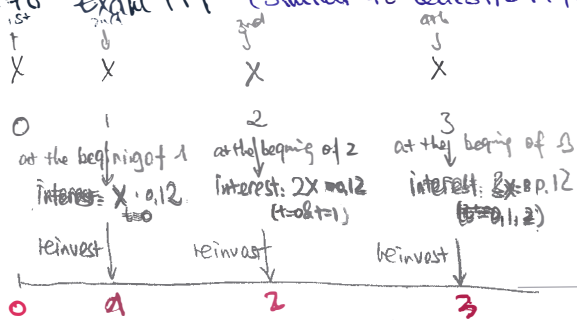 to Exam (similar to
1st 2nd 3rd 4th
X X X X
0 1 2 3
at the begining of 1 at the beging of 2 at the begging of 3
interest: X · 0,12 interest: 2X 0,12 interest: 0.12
t=0 (t=0&t=1) 0,1,2)
reinvest reinvest reinvest
0 1 2 3